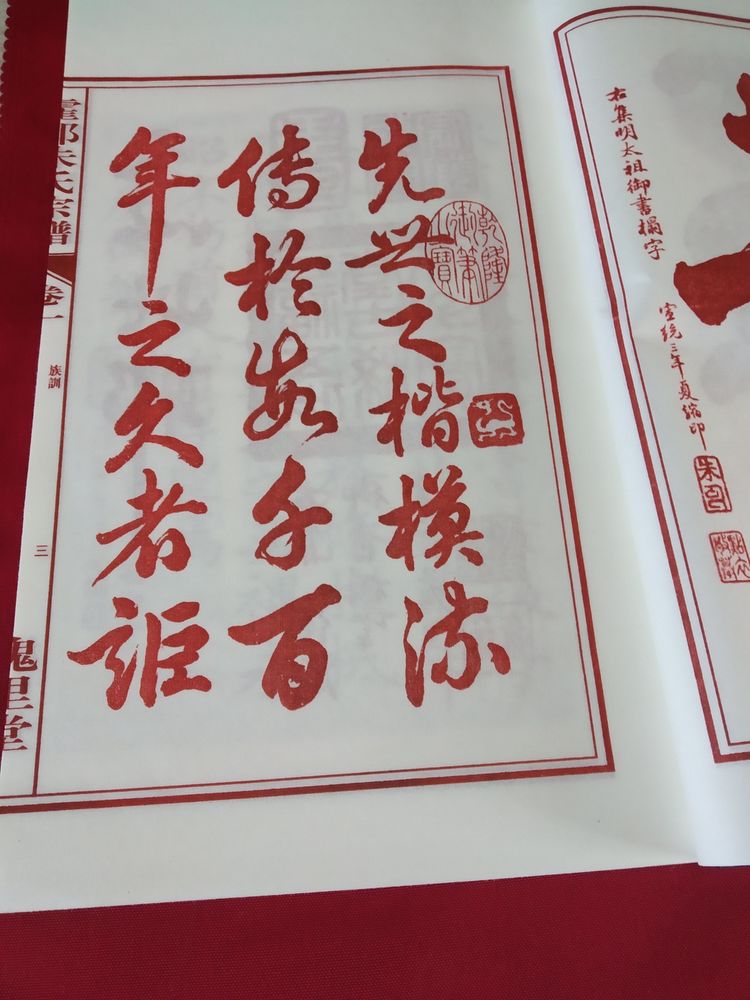 右集明太祖御書搨字
宣統三年夏縮印
先世之楷模流
傳於數千百
年之久者詎
乾隆御筆之寶
朱氏宗譜
卷一
族訓
三
里堂